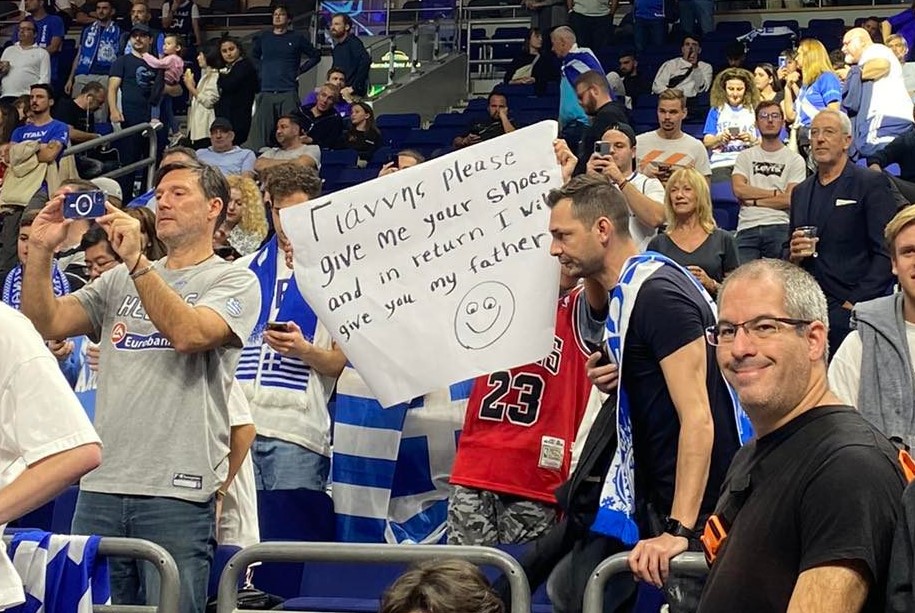 Γιάννης please
give me your shoes
and in return I wi
give you my father
HELL
Eurobank
23
ITALY